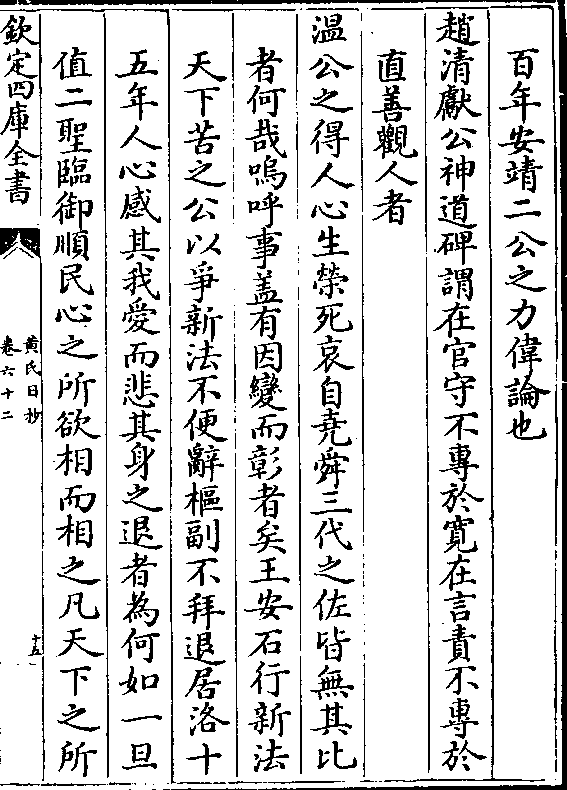 百年安靖二公之力偉論也
趙清獻公神道碑謂在官守不專於寛在言責不專於
直善觀人者
溫公之得人心生榮死哀自堯舜三代之佐皆無其比
者何哉嗚呼事盖有因變而彰者矣王安石行新法
天下苦之公以爭新法不便辭樞副不拜退居洛十
五年人心感其我愛而悲其身之退者為何如一旦
值二聖臨御順民心之所欲相而相之凡天下之所
欽定四庫全書
黄氏日抄
卷六十二
十五